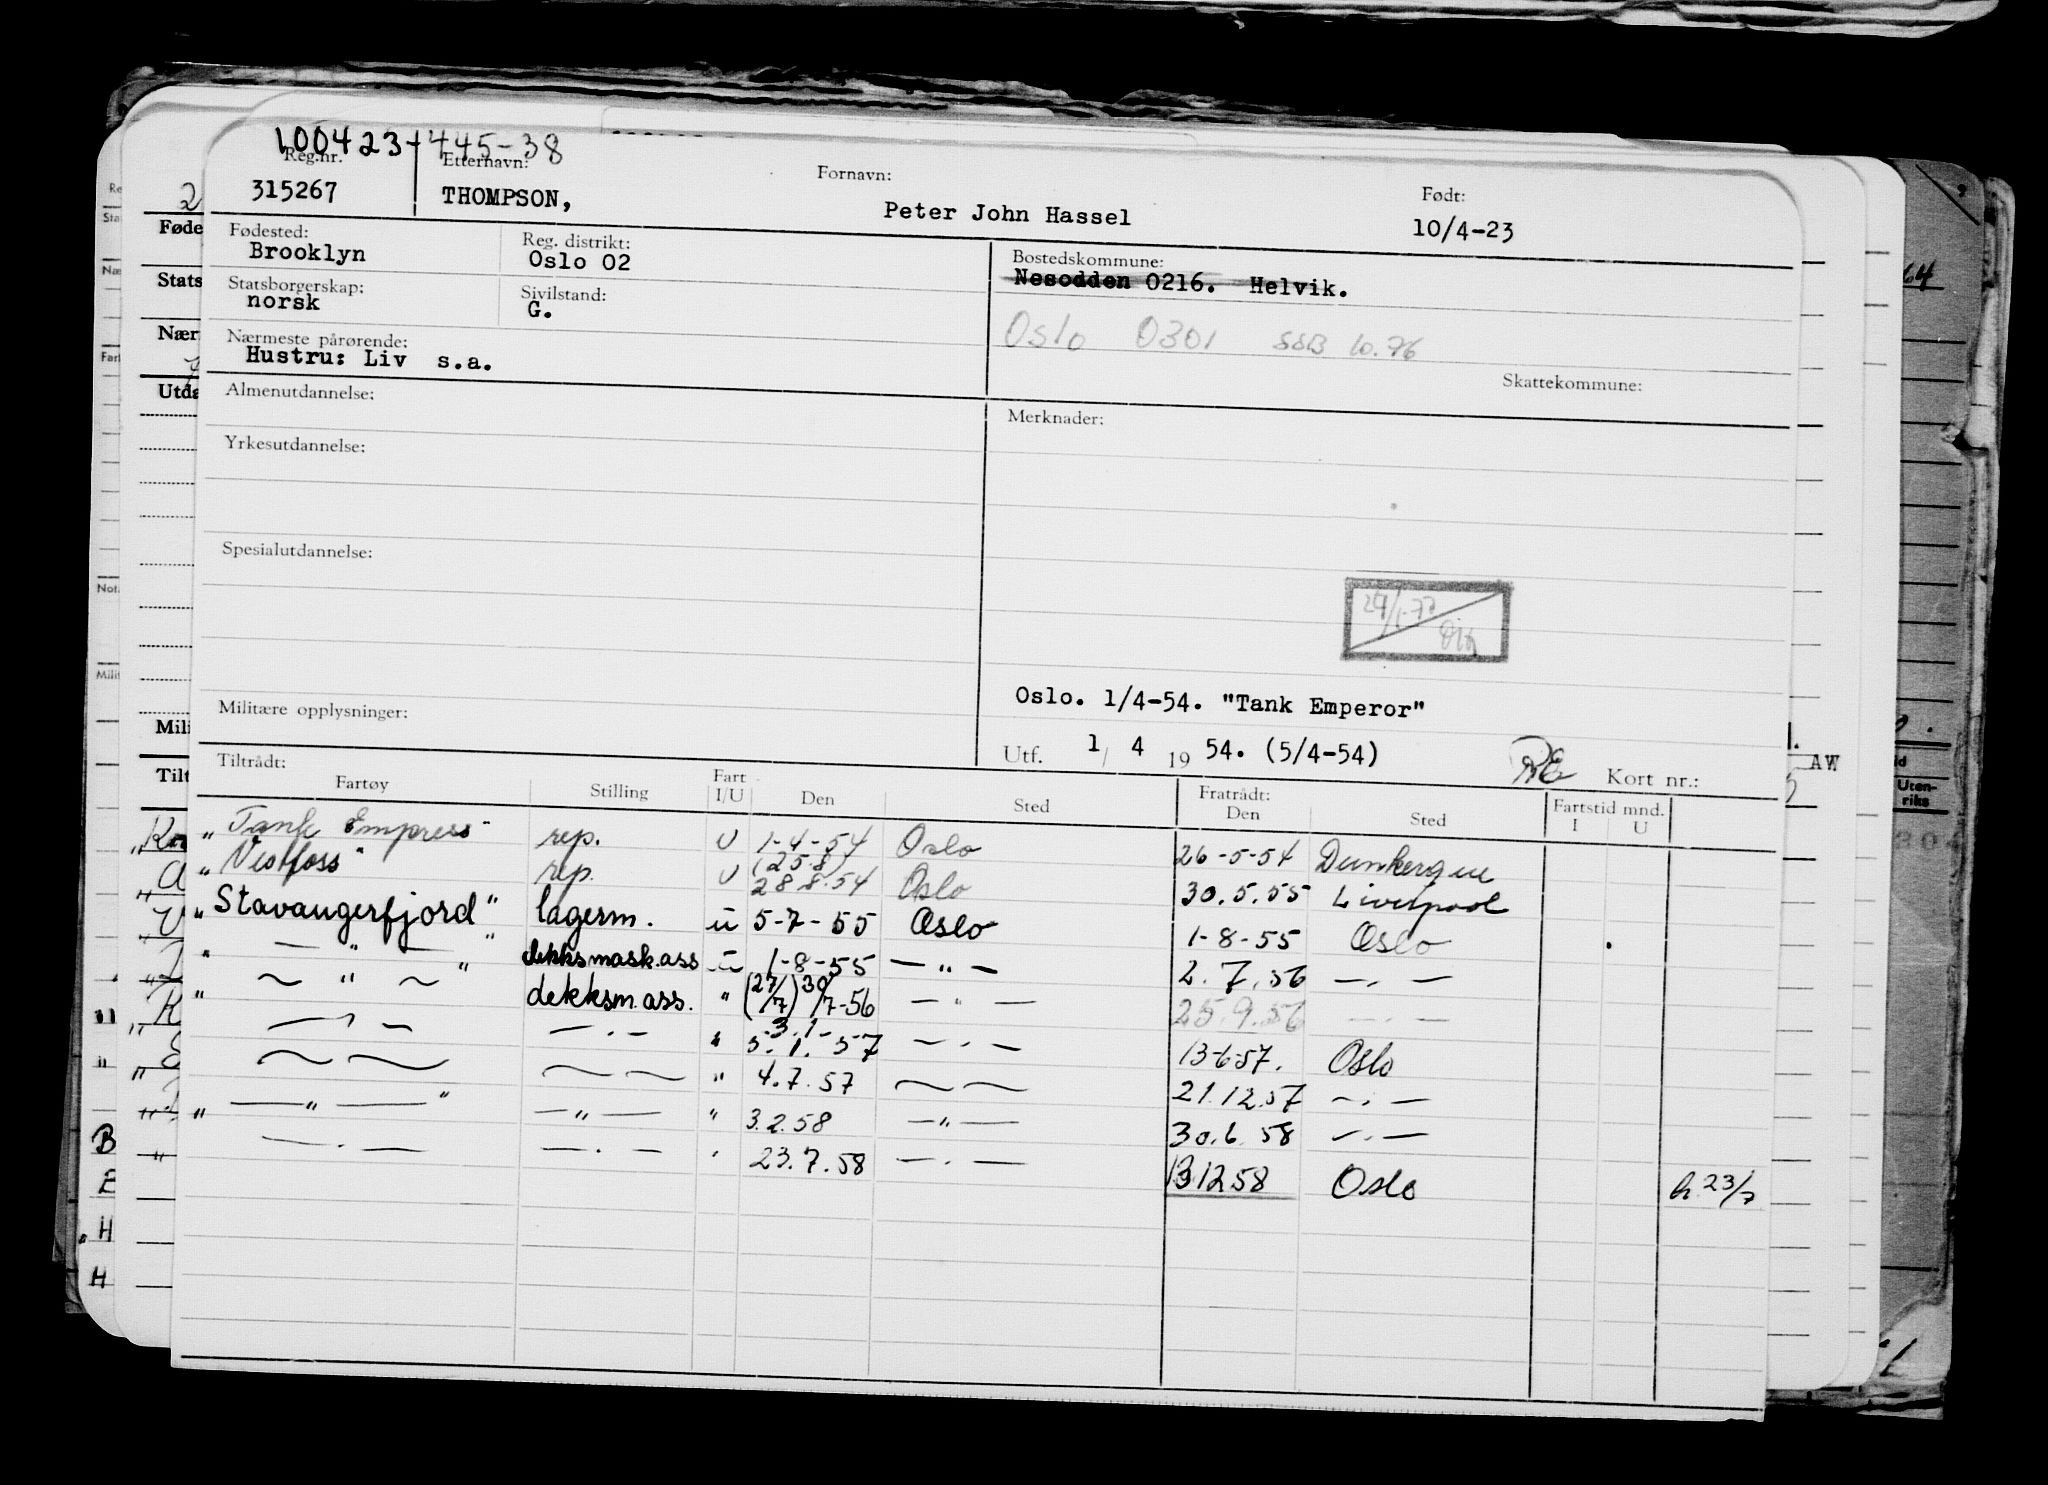 100423-445-38
Reg.nr. Etternavn: Fornavn: Født:
315267 THOMPSON, Peter John Hassel 10/4-23
Fødested: Reg. distrikt: Bostedskommune:
Brooklyn Oslo 02 Nesodden 0216. Helvik.
Statsborgerskap: Sivilstand:
norsk G.
Oslo 0301 SSB 10.76
Nærmeste pårørende:
Hustru: Liv s.a.
Skattekommune:
Almenutdannelse: Merknader:
Yrkesutdannelse:
Spesialutdannelse:
Oslo. 1/4-54. "Tank Emperor"
Militære opplysninger:
Utf. 1/ 4 19 54. (5/4-54) Kort nr.:
Tiltrådt: Fratrådt:
Fartøy Stilling Fart I/U Den Sted Den Sted Fartstid mnd. I U
"Tank Empress" rep. U 1-4-54 Oslo 26-5-54 Dunkerque
"Vestfoss" rep. U (25.8) 28.8.54 Oslo 30.5.55 Liverpool
"Stavangerfjord" lagerm. u 5-7-55 Oslo 1-8-55 Oslo
" — " — " dekksmask.ass u 1-8-55 — " — 2.7.56 — . —
" ~ " ~ " dekksm.ass. " (27/7) 30/7-56 — " — 25.9.56 — . —
— " — — . — " 3.1- 5.1.-57 — . — 13-6-57. Oslo
~ ~ ~ ~ " 4.7.57 ~ ~ 21.12.57 ~ . —
" — " — " — " — " 3.2.58 — " — 30.6.58 — . —
— . — — . — " 23.7.58 — . — 13 12 58 Oslo h. 23/7